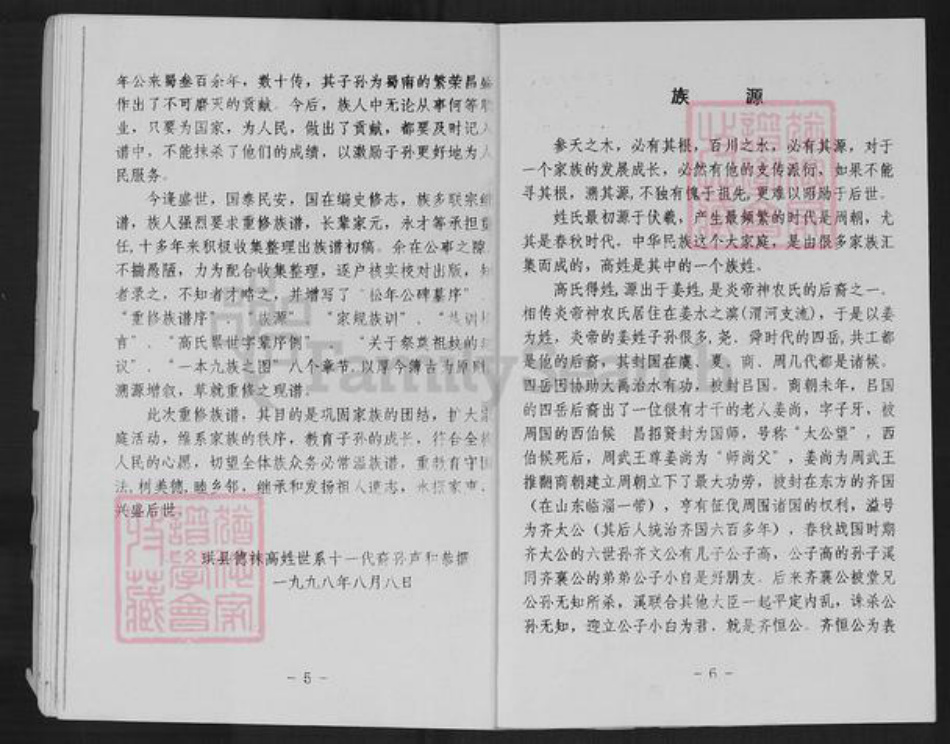 年公来蜀叁百余年，数十传，其子孙为蜀南的繁荣昌盛
作出了不可磨灭的贡献。今后，族人中无论从事何等职
业，只要为国家，为人民，做出了贡献，都要及时记入
谱中，不能抹杀了他们的成绩，以激励子孙更好地为人
民服务。
今逢盛世，国泰民安，国在编史修志，族多联宗
谱，族人强烈要求重修族谱，长辈家元，永才等承担重
任,十多年来积极收集整理出族谱初稿。余在公事之隙，
不揣愚陋，力为配合收集整理，逐户核实校对出版，知
者录之，不知者才略之，并增写了“松年公碑墓序”
“重修族谱序”“族源”“家规族训”、“族训
言”、“高氏累世字辈序例”、“关于祭奠祖蚊的
议”、“一本九族之图”八个章节,以厚今薄古为原则,
溯源增叙，草就重修之现谱。
此次重修族谱，其目的是巩固家族的团结，扩大家
庭活动，维系家族的秩序，教育子孙的成长，符合全
人民的心愿，切望全体族众务必常温族谱，重教育守国
法,树美德,睦乡邻，继承和发扬祖人遗志，永振家声，
兴盛后世。
珙县德袜高姓世系十一代裔孙声和恭撰
一九九八年八月八日
- 5 -
族 源
参天之木，必有其根，百川之水，必有其源，对于
一个家族的发展成长，必然有他的支传派衍，如果不能
寻其根，溯其源,不独有愧于祖先,更难以昭励于后世。
姓氏最初源于伏羲，产生最频繁的时代是周朝，尤
其是春秋时代。中华民族这个大家庭，是由很多家族汇
集而成的，高姓是其中的一个族姓。
高氏得姓,源出于姜姓,是炎帝神农氏的后裔之一。
相传炎帝神农氏居住在姜水之滨(渭河支流)，于是以姜
为姓，炎帝的姜姓子孙很多,尧、舜时代的四岳,共工都
是他的后裔，其封国在虞、夏、商、周几代都是诸候。
四岳因协助大禹治水有功，被封吕国。商朝未年，吕国
的四岳后裔出了一位很有才干的老人姜尚，字子牙，被
周国的西伯候 昌招贤封为国师，号称“太公望”，西
伯候死后，周武王尊姜尚为“师尚父”，姜尚为周武王
推翻商朝建立周朝立下了最大功劳，被封在东方的齐国
（在山东临淄一带），享有征伐周围诸国的权利，溢号
为齐太公（其后人统治齐国六百多年），春秋战国时期
齐太公的六世孙齐文公有儿子公子高，公子高的孙子溪
同齐襄公的弟弟公子小白是好朋友。后来齐襄公被堂兄
公孙无知所杀，溪联合其他大臣一起平定内乱，诛杀公
孙无知，迎立公子小白为君，就是齐恒公。齐恒公为表
- 6 -
FamilySearch